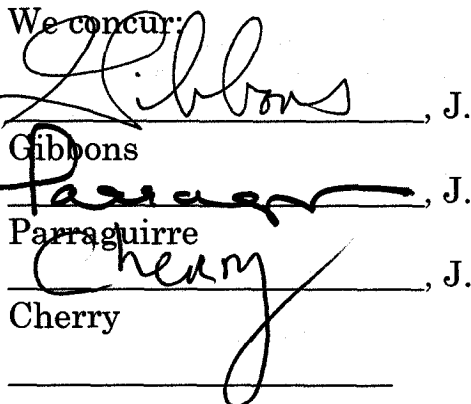 We concur:
Gibbons, J.
Gibbons
Parraguirre, J.
Parraguirre
Cherry, J.
Cherry